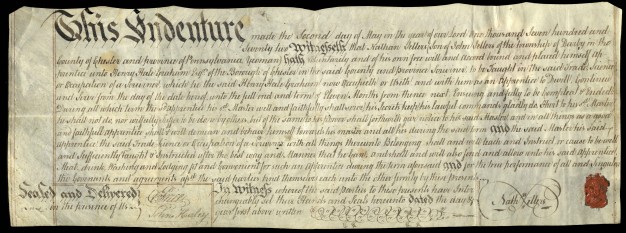 This Indenture made the Second day of May in the year of our Lord One thousand Seven hundred and
Seventy two Witnesseth that Nathan Sellers Son of John Sellers of the Township of Darby in the
County of Chester and province of Pennsylvania Yeoman hath Voluntarily and of his own free will and Accord bound and placed himself
prentice unto Henry Hale Graham Esqr. of the Borough of Chester in the said County and Province
or Occupation of a which he the said Henry Hale Graham now Occupieth or Useth and with him as an Apprentice to Dwell Continue
and Serve from the day of the date hereof until the full end and term of Months from thence next Ensuing and fully to be Compleat & Ended
During all which term the sd. Apprentice his sd. Master well and faithfully shall serve, his Secrets keep his lawful commands gladly do Hurt to his sd. Master
he shall not do nor wilfully suffer to be done by others, but of the same to his power shall forthwith give notice to his said Master and in all things as a good
and faithful apprentice shall demean and behave himself towards his master and all his during the said term and the said Master his said
apprentice the said or Occupation of a with all things thereunto Belonging shall and will teach and Instruct or cause to be well
and Sufficiently Taught & Instructed after the best way and Manner that he can and shall and will also find and allow unto his said Apprentice
Meat, drink, Washing and Lodging during the term aforesaid and for the true performance of all and Singular
the Covenants and agreements aforesaid the said parties bind themselves each unto the other firmly by these presents
Sealed and Delivered
in the presence of Us
In Witness whereof the said parties to these presents have Inter-
changeably set their Hands and Seals hereunto Dated the day &
year first above written
Nath Sellers